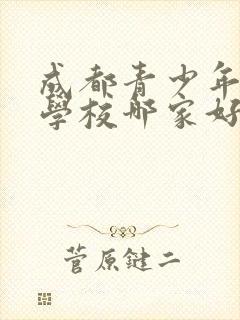 成都青少年
學校哪家好
菅原鍵二